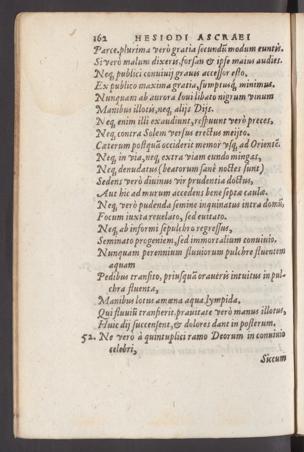 162 HESIODI ASCRAEI
Parce, plurima verò gratia secundũ modum euntis.
Si verò malum dixeris, forsan & ipse maius audies.
Neq, publici conviuij grauis accessor esto,
Ex publico maxima gratia, sumptusq́, minimus.
Nunquam ab aurora Ioui libato nigrum vinum
Manibus illotis, neq, alijs Dijs.
Neq, enim illi exaudiunt, respuunt verò preces,
Neq, contra Solem versus erectus meijto.
Cæterum postquã occiderit memor vsq, ad Orientẽ.
Neq, in via, neq, extra viam eundo mingas,
Neq, denudatus (beatorum sanè noctes sunt)
Sedens verò diuinus vir prudentia doctus,
Aut hic ad murum accedens bene septæ caulæ.
Neq, verò pudenda semine inquinatus intra domũ,
Focum iuxta reuelato, sed euitato.
Neq, ab informi sepulchro regressus,
Seminato progeniem, sed immortalium conuiuio.
Nunquam perennium fluuiorum pulchre fluentem
aquam
Pedibus transito, priusquã oraueris intuitus in pul-
chra fluenta,
Manibus lotus amœna aqua lympida.
Qui fluuiũ transierit, prauitate verò manus illotus,
Huic dij succensent, & dolores dant in posterum.
52. Ne verò à quintuplici ramo Deorum in conuiuio
celebri,
Siccum